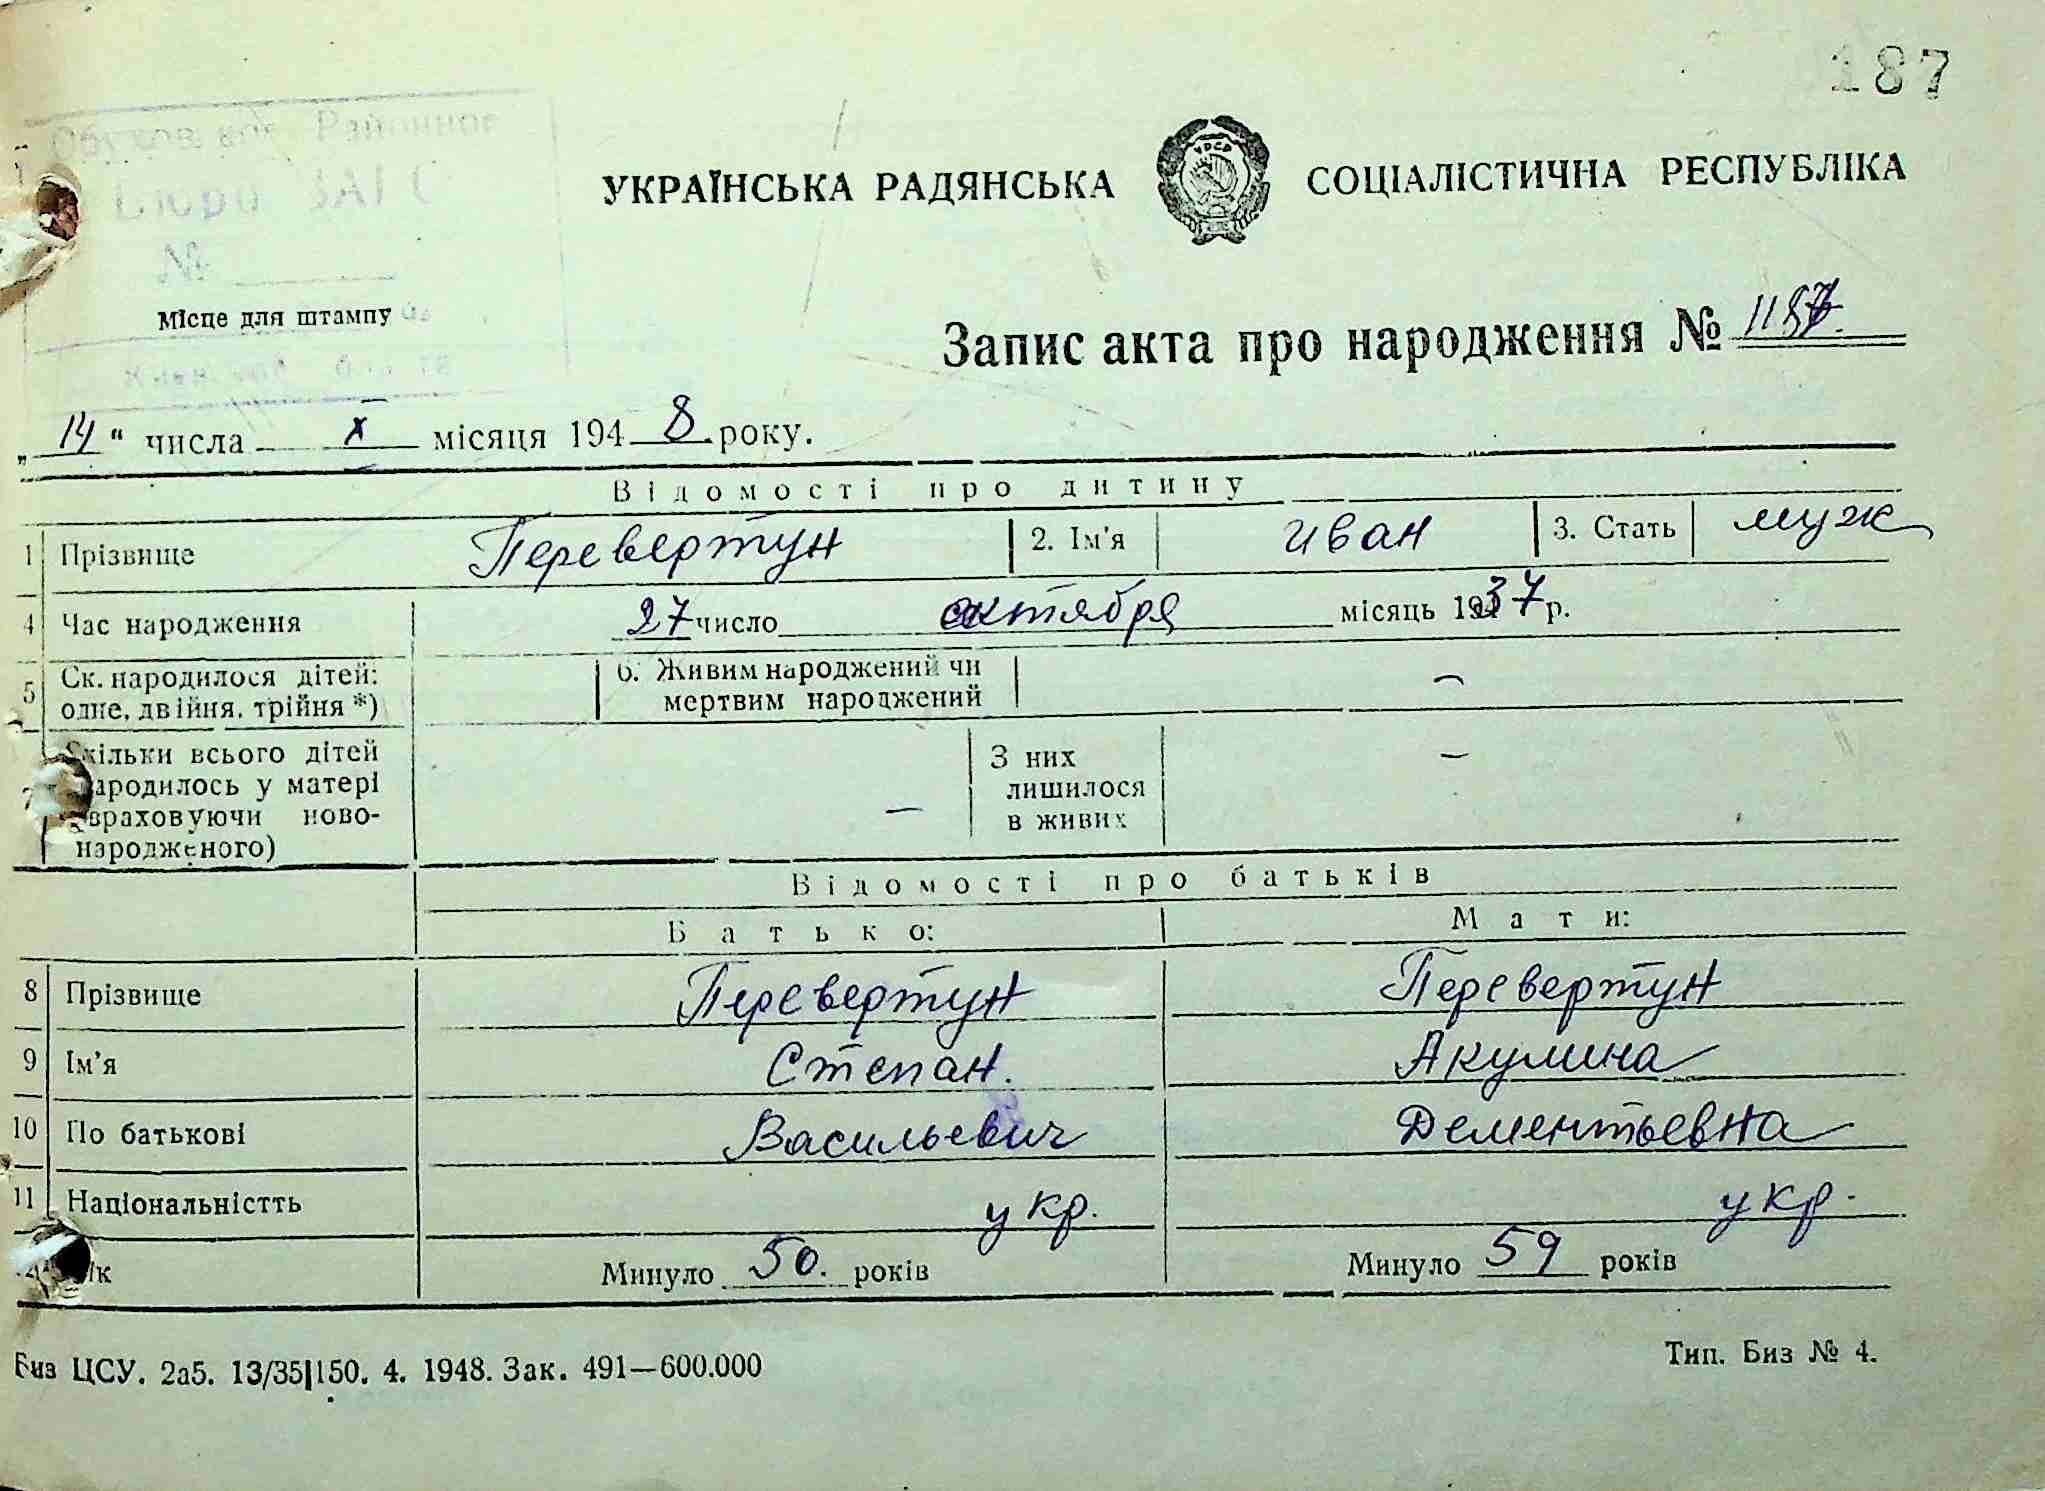 187
Районное
Бюро ЗАГС
№
УКРАЇНСЬКА РАДЯНСЬКА СОЦІАЛІСТИЧНА РЕСПУБЛІКА
УРСР
Місце для штампу
Запис акта про народження №
„14“ числа X місяця 1948 року.
Відомості про дитину
1 Прізвище Перевертун 2. Ім'я Иван 3. Стать муж
4 Час народження 27 число октября місяць 1937 р.
5 Ск. народилося дітей: 6. Живим народжений чи —
одне, двійня, трійня *) мертвим народжений
7 Скільки всього дітей З них —
народилось у матері — лишилося
(враховуючи ново- в живих
народженого)
Відомості про батьків
Батько: Мати:
8 Прізвище Перевертун Перевертун
9 Ім'я Степан. Акулина
10 По батькові Васильевич Дементьевна
11 Національністть укр. укр.
12 Вік Минуло 50. років Минуло 59 років
Биз ЦСУ. 2а5. 13/35|150. 4. 1948. Зак. 491—600.000 Тип. Биз № 4.